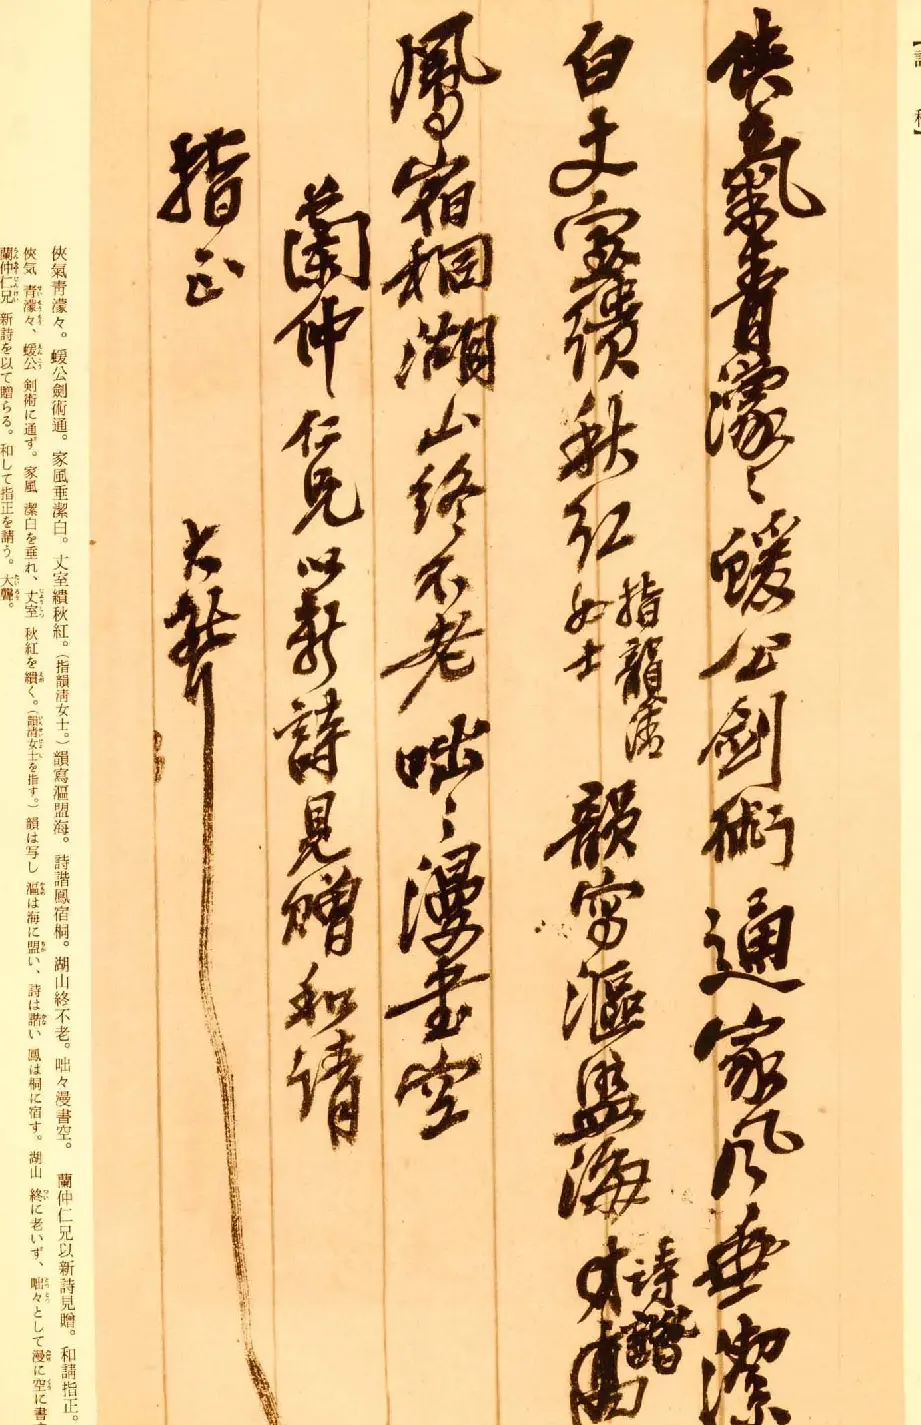 俠氣青濛々蝯公劍術通家風垂潔
白丈室繢秋紅指韻清女士韻寫漚盟海詩諧
鳳宿桐湖山終不老咄々漫書空
蘭仲仁兄以新詩見贈和請
指正
大聾
俠氣靑濛々。蝯公劍術通。家風垂潔白。丈室繢秋紅。(指韻淸女士。)韻寫漚盟海。詩諧鳳宿桐。湖山終不老。咄々漫書空。 蘭仲仁兄以新詩見贈。和請指正。
俠気 青濛々、蝯公 剣術に通ず。家風 潔白を垂れ、丈室 秋紅を繢く。(韻清女士を指す。)韻は写し 漚は海に盟い、詩は諧い 鳳は桐に宿す。湖山 終に老いず、咄々として漫に空に書
蘭仲仁兄 新詩を以て贈らる。和して指正を請う。大聾。